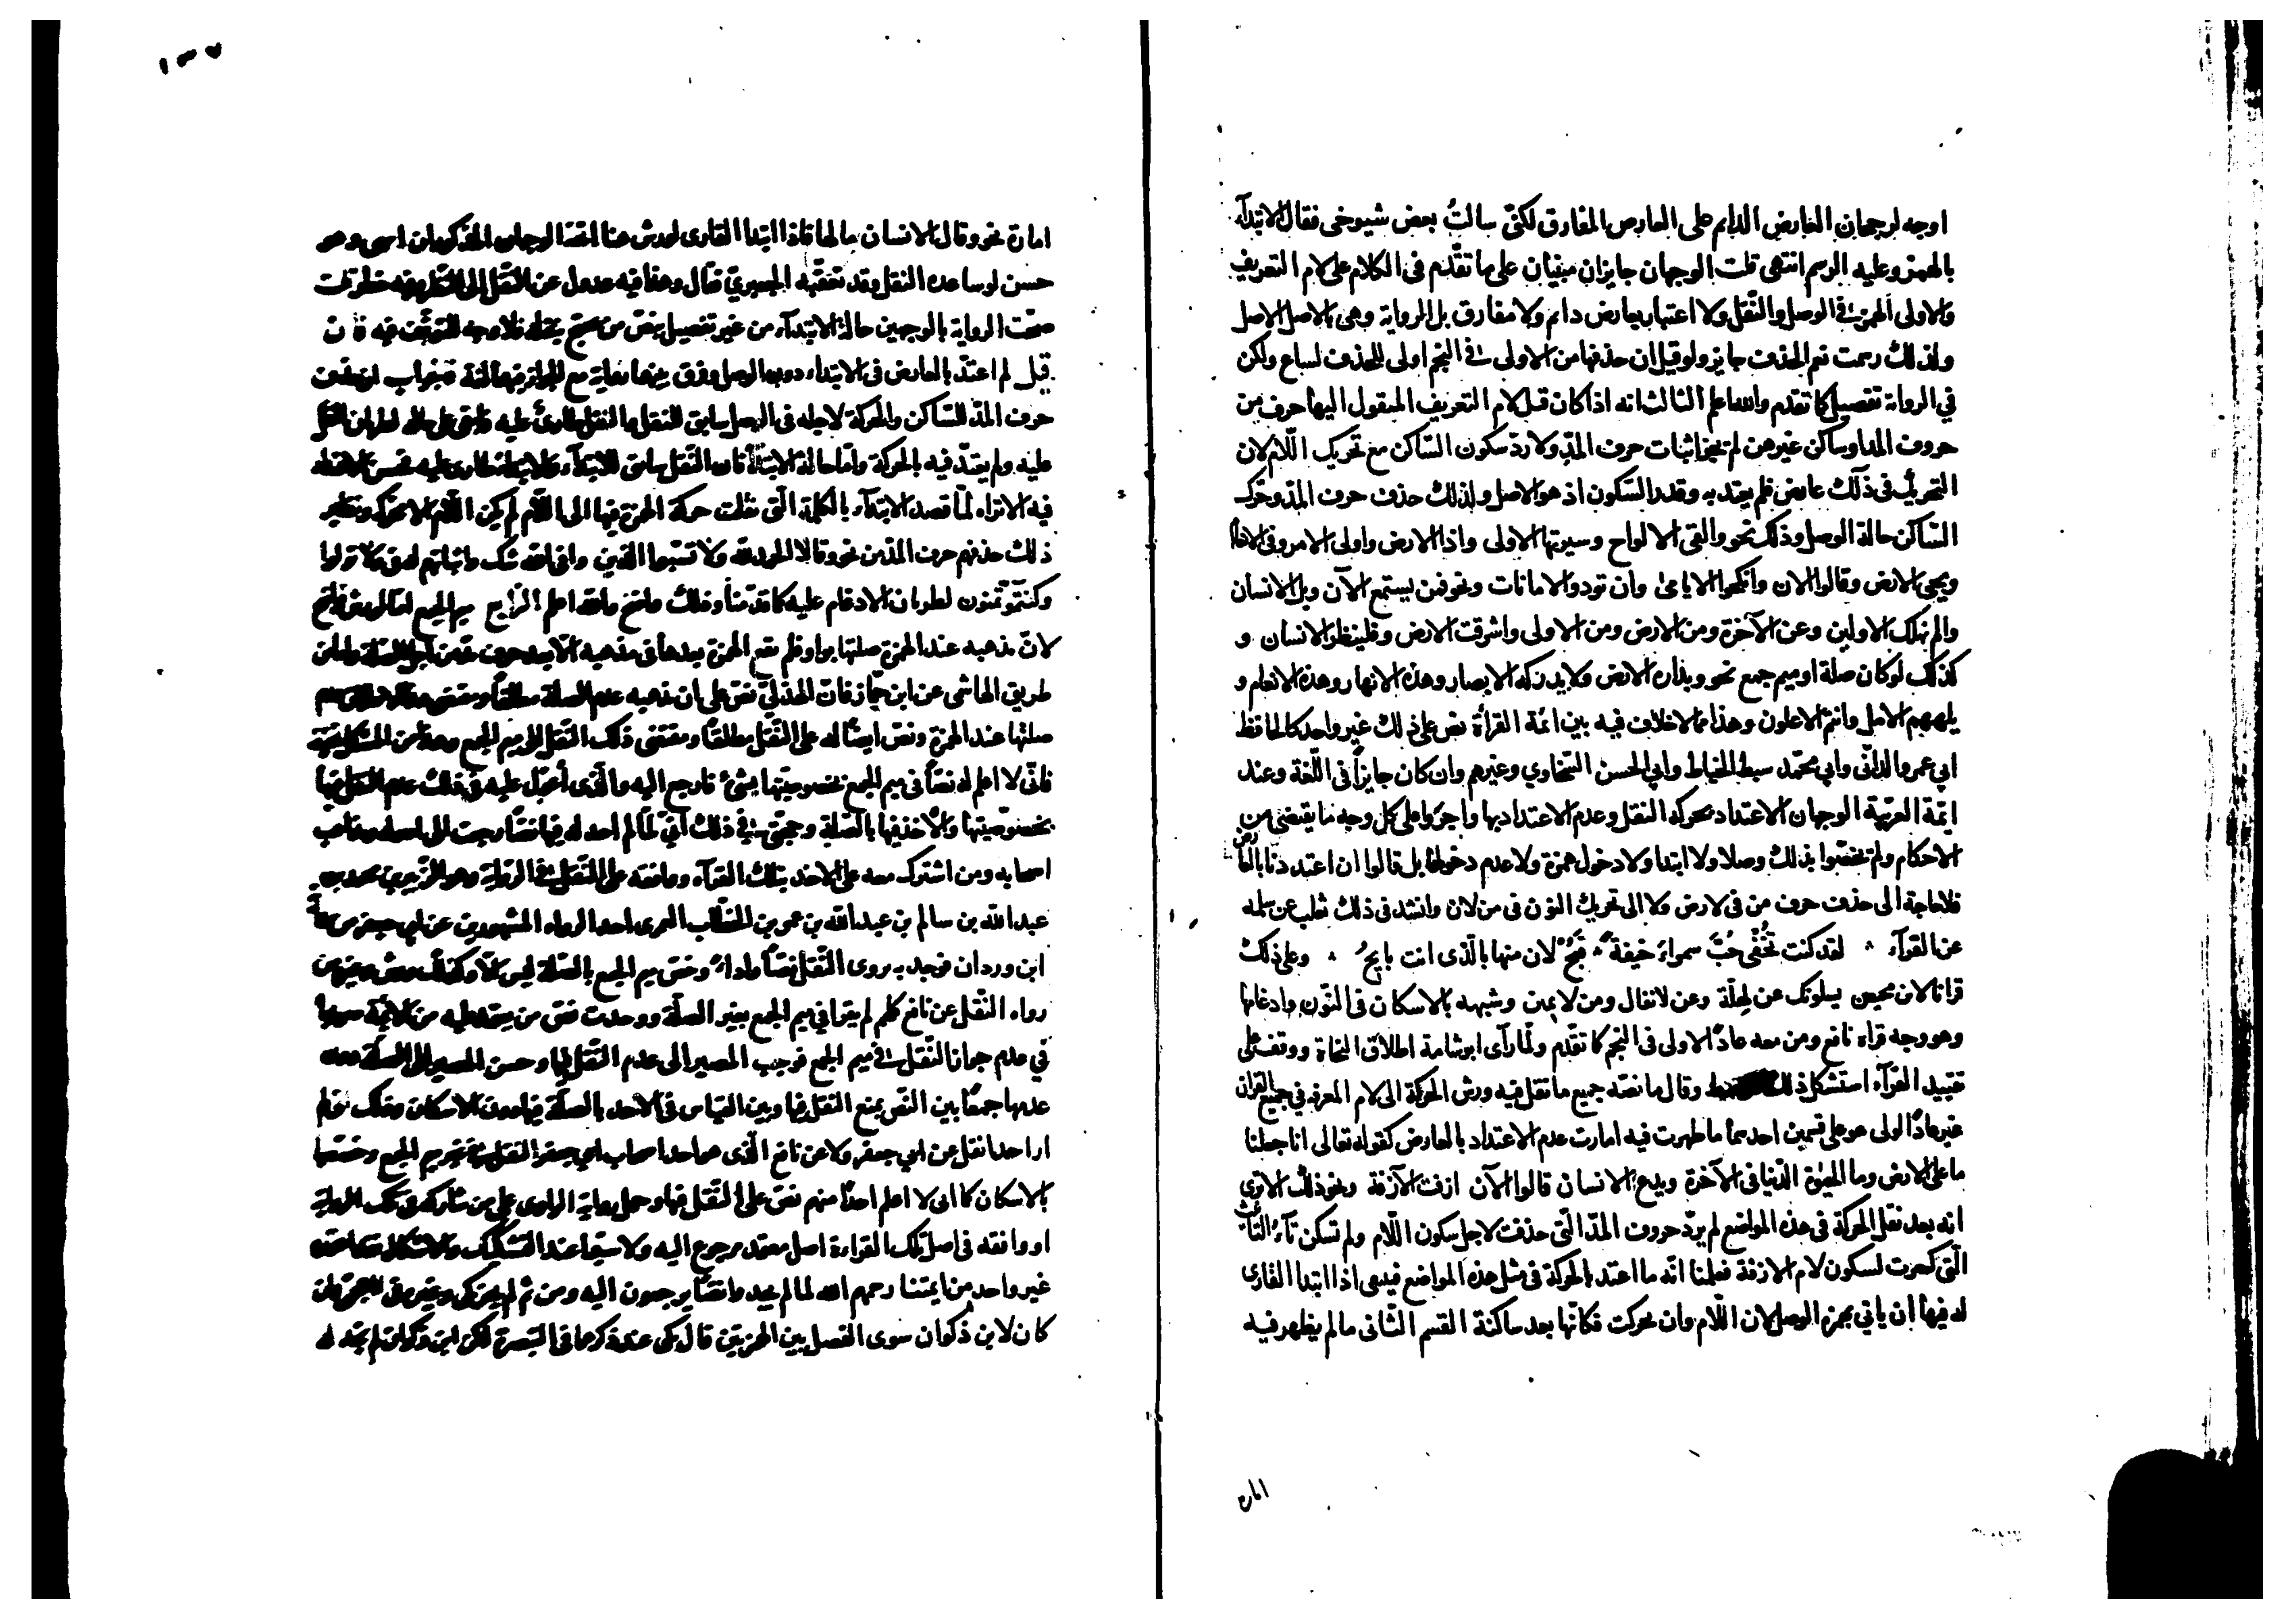 اوجه لرجحان العارض الدايم على العارض المفارق لكنى سالت بعض شيوخى فقال الابتداء
بالهمز وعليه الرسم انتهى قلت الوجهان جايزان مبنيان على ما تقدّم فى الكلام على لام التعريف
والاولى الهمز فى الوصل والنقل ولا اعتبار بعارض دايم ولا مفارق بل الرواية وهى بالاصل الاصل
ولذلك رسمت نعم الحذف جايز ولو قيل ان حذفها من الاولى فى النجم اولى للحذف لساع ولكن
فى الرواية تفصيل كما تقدم والله اعلم الثالث انه اذا كان قبل لام التعريف المنقول اليها حرف من
حروف المد او ساكن غيرهن لم يجز اثبات حرف المدّ ولا ردّ سكون الساكن مع تحريك اللّام لان
التحريك فى ذلك عارض فلم يعتد به وقدر السكون اذ هو الاصل ولذلك حذف حرف المدّ وحرّك
السّاكن حالة الوصل وذلك نحو والقى الالواح وسيرتها الاولى واذا الارض واولى الامر وفى الانعام
ويحيى الارض وقالوا الان وانكحوا الايامى وان تودوا الامانات ونحو فمن يستمع الآن وبل الانسان
والم نهلك الاولين وعن الآخرة ومن الارض ومن الاولى واشرقت الارض وفلينظر الانسان و
كذلك لو كان صلة او ميم جمع نحو وبداره الارض ولا يدركه الابصار وهذه الانهار وهذه الانعام و
يلههم الامل وانتم الاعلون وهذا مما لا خلاف فيه بين ائمة القرأة نص على ذلك غير واحد كالحافظ
ابى عمرو الدانى وابى محمّد سبط الخياط وابى الحسن السّخاوي وغيرهم وان كان جايزاً فى اللّغة وعند
ايمّة العربيّة الوجهان الاعتداد بحركة النقل وعدم الاعتداد بها واجروا على كل وجه ما يقتضى من
الاحكام ولم يخصّوا بذلك وصلا ولا ابتدا ولا دخول همزة ولا عدم دخولها بل قالوا ان اعتددنا بالعارض
فلا حاجة الى حذف حرف من فى لارض ولا الى تحريك النون فى من لان وانشد فى ذلك ثعلب عن سلمه
عن الفرّاء لقد كنت تُخْفى حُبَّ سمراءَ خيفةً فَبُحْ لان منها بالّذى انت بايحُ وعلى ذلك
قرانا لابن محيصن يسلونك عن لهلّة وعن لانفال ومن لاثمين وشبهه بالاسكان فى النّون وادغامها
وهو وجه قراة نافع ومن معه عادً الاولى فى النجم كما تقدّم ولمّا رآى ابو شامة اطلاق النحاة ووقف على
تقييد القرّاء استشكل ذلك وقال ما نصّه جميع ما نقل فيه ورش الحركة الى لام المعرفة فى جميع القران
غير عادًا لولى هو على قسمين احدهما ما ظهرت فيه امارت عدم الاعتداد بالعارض كقوله تعالى انا جعلنا
ما على الارض وما الحيوة الدّنيا فى الآخرة ويدع الانسان قالوا الآن ازفت الآزفة ونحو ذلك الا ترى
انه بعد نقل الحركة فى هذه المواضع لم يردّ حروف المدّ الّتى حذفت لاجل سكون اللّام ولم تسكن تآءُ التأنيث
الّتى كسرت لسكون لام الازفة فعلمنا انّه ما اعتد بالحركة فى مثل هذه المواضع فينبغى اذا ابتدا القارى
له فيها ان ياتي بهمزة الوصل لان اللّام وان تحركت فكانّها بعد ساكنة القسم الثّانى ما لم يظهر فيه
امارة
١٣٧
امارة نحو وقال الانسان مالها فاذا ابتدا القارى لورش هنا اتجه الوجهان المذكوران انتهى وهو
حسن لو ساعده النقل وقد تعقّبه الجعبريّ فقال وهذا فيه عدول عن النّقل الى النّظر وفيه خطر قلت
صحّت الرواية بالوجهين حالة الابتداء من غير تفصيل بنصّ من يحتج بنقله فلا وجه للتوقف فيه فان
قيل لم اعتدّ بالعارض فى الابتداء دون الوصل وفرق بينهما رواية مع الجواز فيهما لغة فجواب ان حذف
حرف المدّ للسّاكن والحركة لاجله فى الوصل سابق للنقل والنقل طارئ عليه فابقى على حاله لطريان النّقل
عليه ولم يعتدّ فيه بالحركة وامّا حالة الابتدآ فان النّقل سابق للابتدآء والابتداء طارى عليه فحسن الاعتداد
فيه الا تراه لمّا قصد الابتدآء بالكلمة الّتى نقلت حركة الهمزة فيها الى اللّام لم يكن اللّام الا محركة ونظير
ذلك حذفهم حرف المدّ من نحو وقالا الحمد لله ولا تسبّوا الّذين وافى الله شك واثباتهم له فى ولا تولوا
وكنتمو تمنون لطريان الادغام عليه كما قدّمنا وذلك واضح والله اعلم الرّابع ميم الجمع امّا لورش فواضح
لانّ مذهبه عند الهمزة صلتها بواو فلم تقع الهمزة بعدها فى مذهبه الّا بعد حرف مدّ من اجل الصّلة وامّا من
طريق الهاشمى عن ابن جمّاز فانّ الهذلىّ نصّ على ان مذهبه عدم الصلة مطلقاً ومقتضى هذا الاطلاق عدم
صلتها عند الهمزة ونصّ ايضاً له على النّقل مطلقاً ومقتضى ذلك النّقل الى ميم الجمع وهذا من المشكل تحقيقه
فانّى لا اعلم له نصّاً فى ميم الجمع بخصوصيّتها بشئ فارجع اليه والّذى أعوّل عليه فى ذلك عدم النّقل فيها
بخصوصيّتها والاخذ فيها بالصّلة وحجّتى فى ذلك انّى لمّا لم اجد له فيها نصّاً رجعت الى اصله ومذاهب
اصحابه ومن اشترك معه على الاخذ بتلك القرآءة ووافقه على النّقل فى الرّواية وهو الزّبيري محمد بن
عبد الله بن سالم بن عبد الله بن عمر بن الخطّاب العمرى احد الرواة المشهورين عن ابى جعفر من رواية
ابن وردان فوجدته يروى النّقل نصّاً واداءً وخصّ ميم الجمع بالصّلة ليس الّا وكذلك ورش وغيره من
رواة النّقل عن نافع كلهم لم يقرا فى ميم الجمع بغير الصلّة ووجدت نصّ من يعتمد عليه من الائمّة صريحاً
فى عدم جواز النّقل فى ميم الجمع فوجب المصير الى عدم النّقل فيها وحسن المصير الى الصّلة معه
عدمها جمعاً بين النّص بمنع النّقل فيها وبين القياس فى الاخذ بالصّلة فيها دون الاسكان وذلك انّى لم
ار احدا نقل عن ابى جعفر ولا عن نافع الّذى هو احد اصحاب ابى جعفر النّقل فى غير ميم الجمع وخصّصها
بالاسكان كما انى لا اعلم احدًا منهم نصّ على النّقل فيها وحمل رواية الراوى على من شاركه فى تلك الرواية
او وافقه فى اصل تلك القراءة اصل معتمد مرجوع اليه ولا سيّما عند التّشكيك والاشكال فقد اعتمده
غير واحد من ايمتنا رحمهم الله لما لم يجدوا نصّاً يرجعون اليه ومن ثم لم يجز مكى وغيره فى
كان لابن ذكوان سوى الفصل بين الهمزتين قال مكى عند ذكرهما فى التّبصرة لكن ابن ذكوان لم نجد له